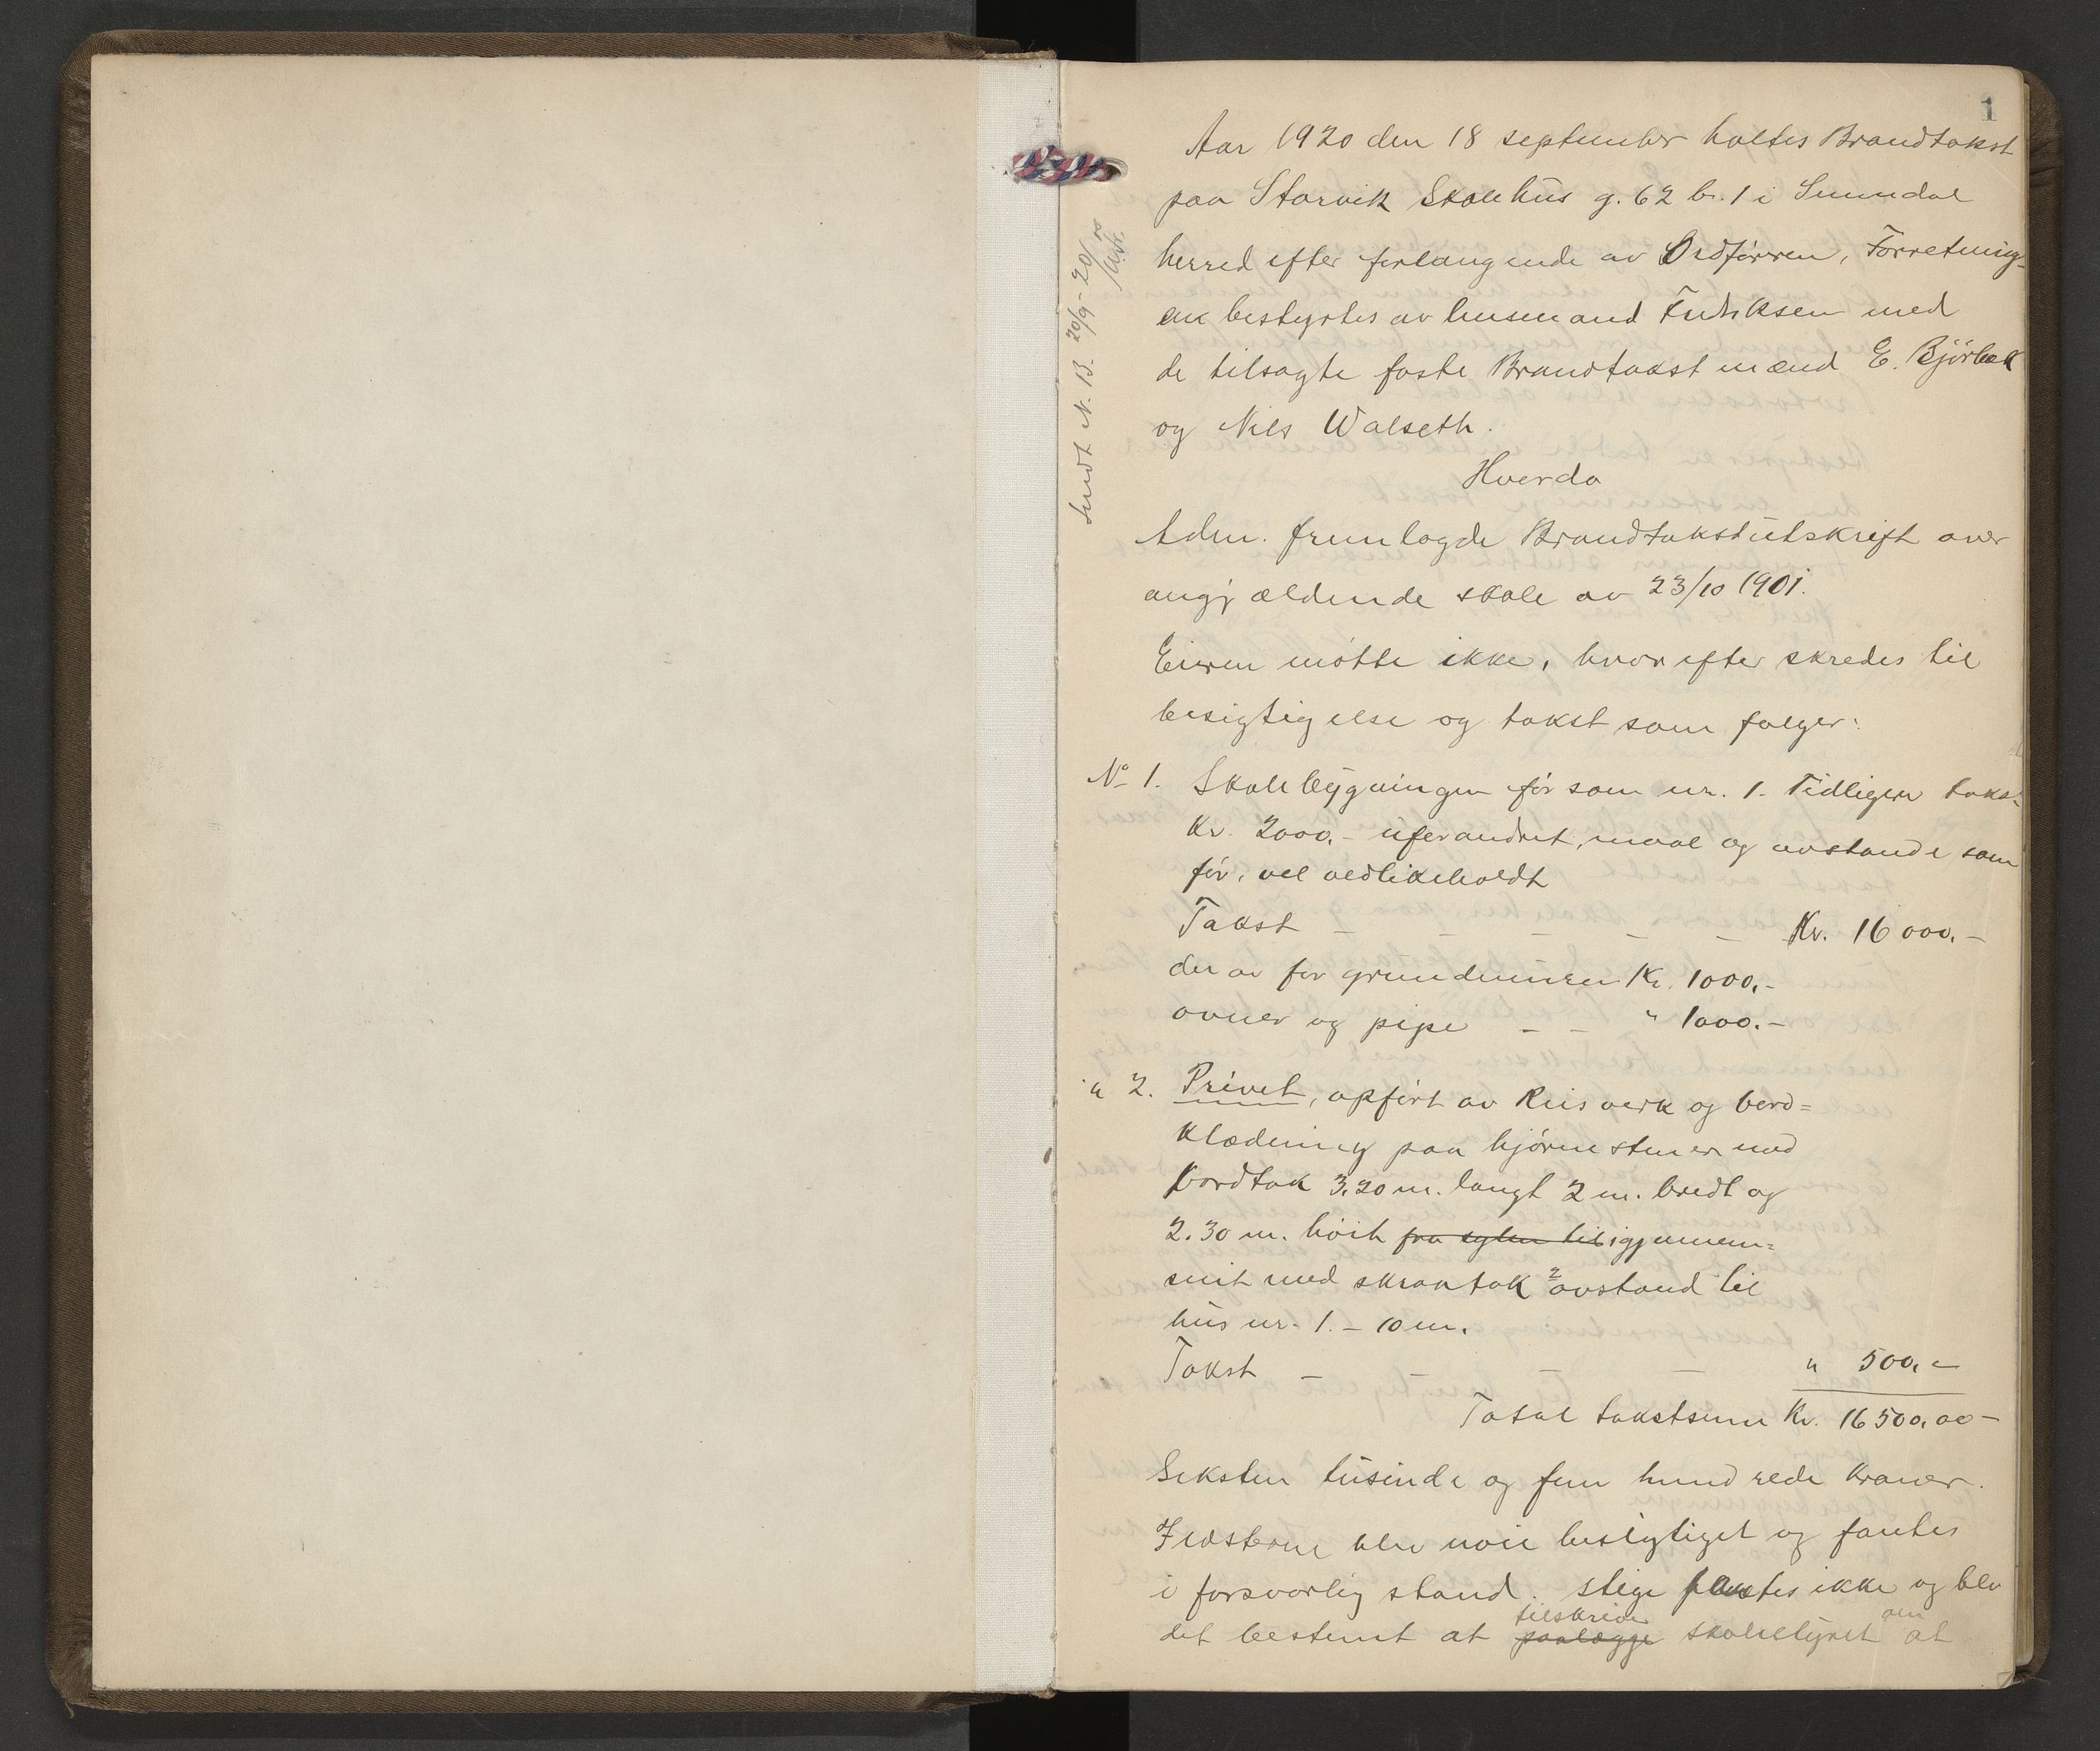 1
Aar 1920 den 18 september holtes Brandtakst
paa Storvik Skolehus g. 62 br. 1 i Sunndal
herred efter forlangende av Ordföreren, Forretning-
en bestyrtes av lensmand Fredriksen med
de tilsagte faste Brandtakstmænd E. Björbæk
og Nils Walseth.
Hverda
Adm. fremlagde Brandtakstutskrift over
angjældende skole av 23/10 1901.
Eieren mötte ikke, hvorefter skredes til
besigtigelse og takst som følger:
No 1. Skolebygningen før som nr. 1. Tidligere takst
Kr. 2000.- uforandret, maal og avstande som
før, vel vedlikeholdt
Takst – – – – – Kr. 16000.-
derav for grundmuren Kr. 1000.-
ovner og pipe – – " 1000.-
" 2. Privet, opført av Reisverk og bord=
klædning paa hjørnestener med
bordtak 3,20 m. langt 2 m. bredt og
2.30 m. høit fra sylen til igjennem=
snit med skraatak avstand til
hus nr. 1. – 10 m.
Takst – – – – " 500.-
Total takstsum Kr. 16500,00-
Seksten tusinde og fem hundrede kroner.
Ildstederne blev nøie besigtiget og fantes
i forsvarlig stand. Stige fantes ikke og blev
det bestemt at paalægge tilskrive skolestyret om at
Sendt N. B. 20/9-20